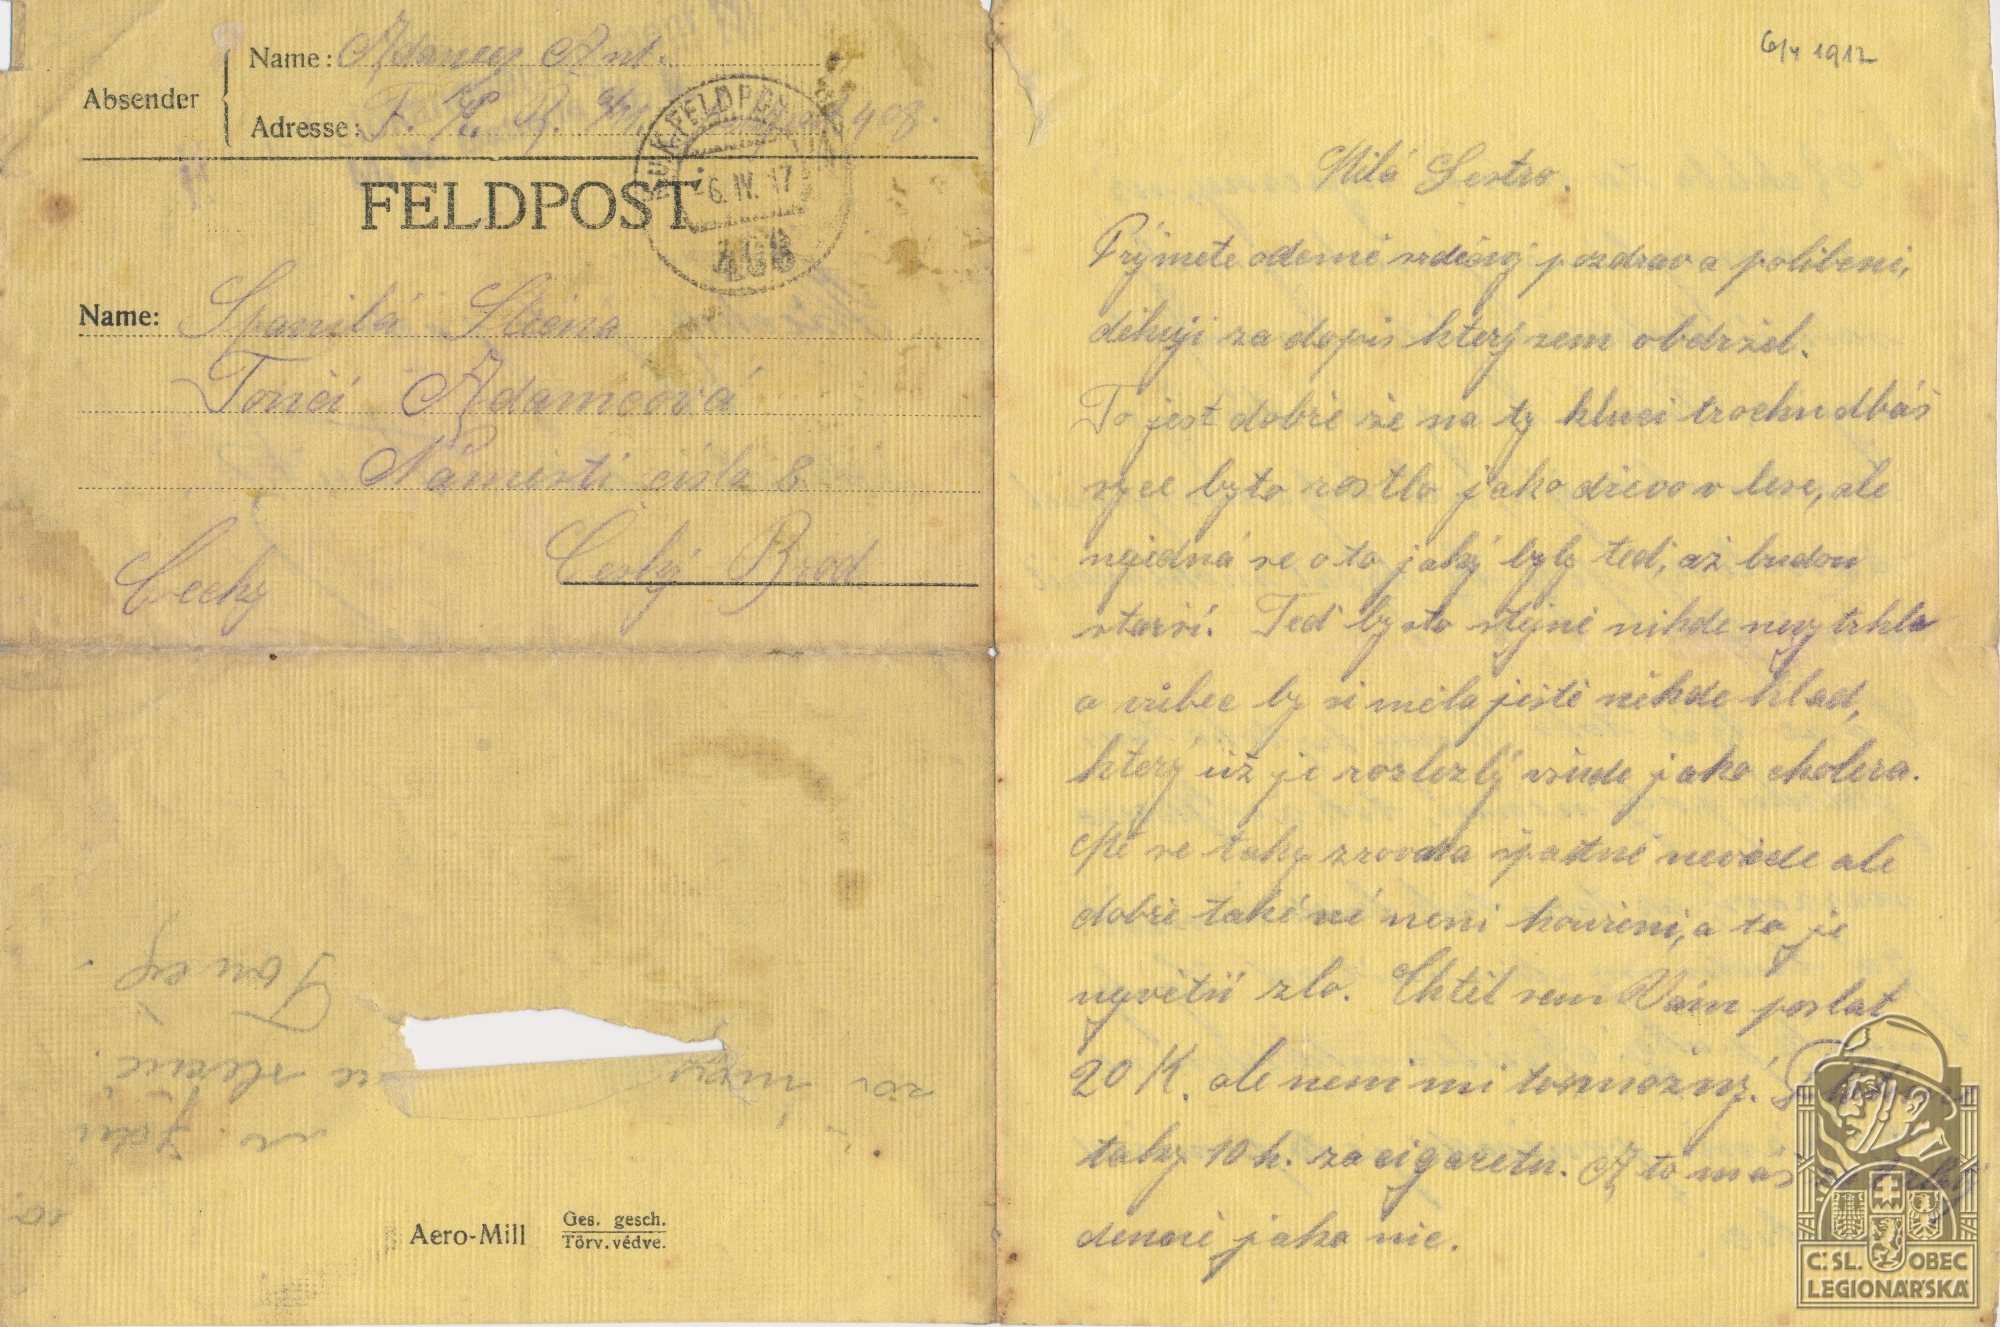 Absender
Name: Adamec Ant.
Adresse: F. K. R. 408.
K.u.K. FELDPOST
6. IV. 17
408
FELDPOST
Name: Spanilá Slečna
Tončí Adamcová
Námestí cisla 8
Český Brod
Čechy
Tonej.
Aero-Mill
Ges. gesch.
Törv. védve.
6/4 1917
Milá Sestro.
Prijmete odemé srdécný pozdrav a políbeni,
dékuji za dopis který sem obdržel.
To jest dobré že na ty kluci trochu dbáš
syce byto rostlo jako dřevo v lese, ale
nyjedná se o to jaký byly ted', až budou
starší. Ted' bysto stejné nikde nevytrhla
a vůbec by si měla ješté někde hlad,
který už je rozlezlý všude jako cholera.
Mé se taky zrovna špatné nevede ale
dobře také né neni kouřeni, a to je
nyvétší zlo. Chtěl sem Vám poslat
20 K. ale neni mi to možný.
taky 10 h. za cigaretu. A to máš
denné jako nic.
Č.SL. OBEC
LEGIONÁŘSKÁ